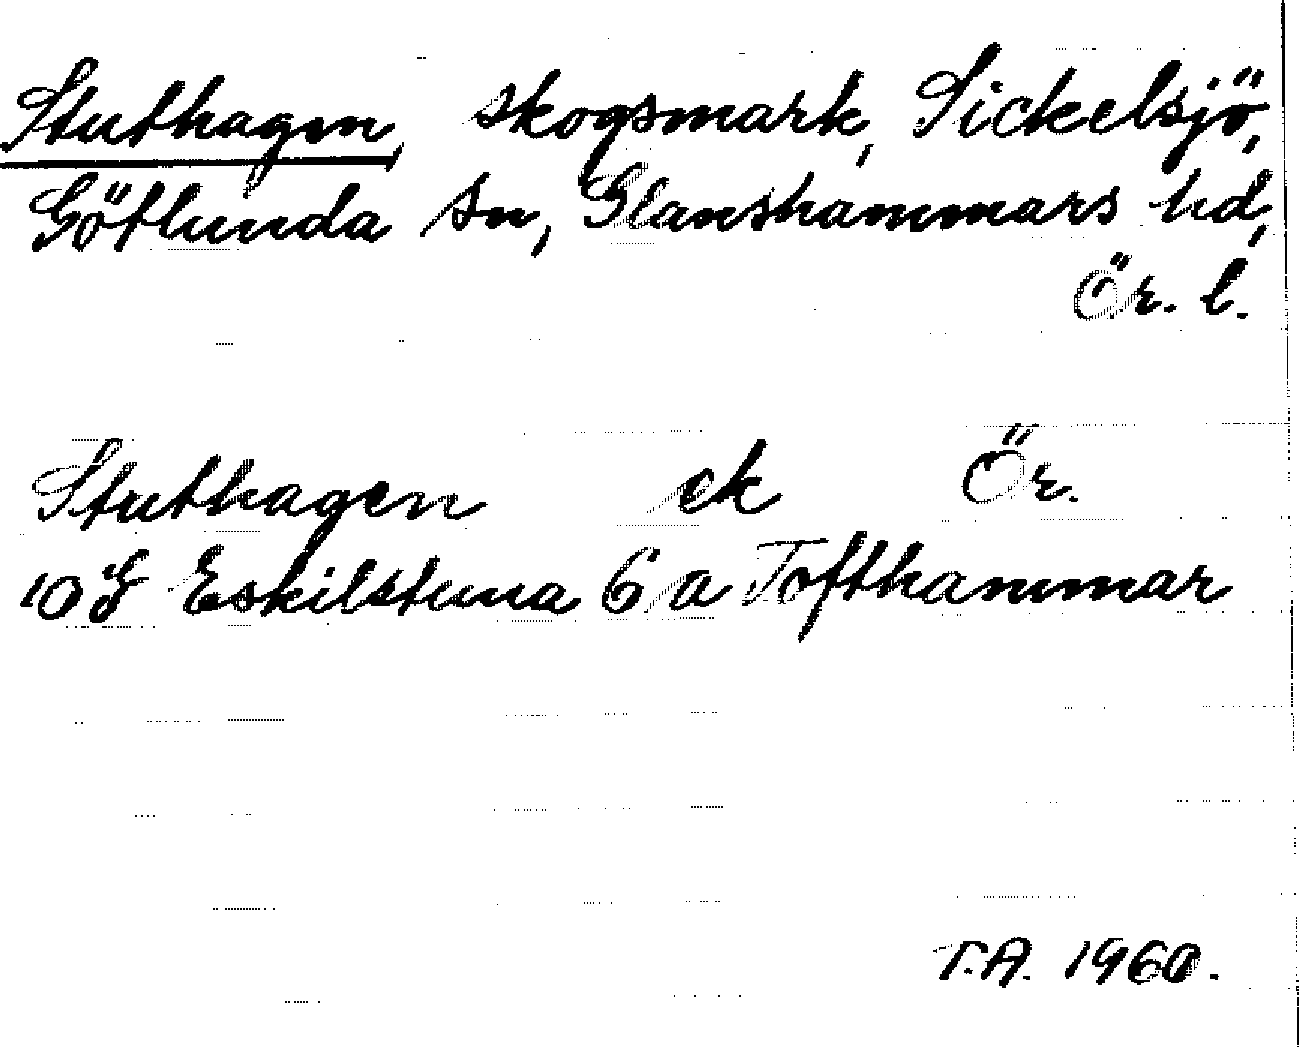 Stuthagen, skogsmark, Sickelsjö,
Götlunda sn, Glanshammars hd,
Ör. l.
Stuthagen ek Ör.
10 G Eskilstuna 6 a Tofthammar
T.A. 1960.